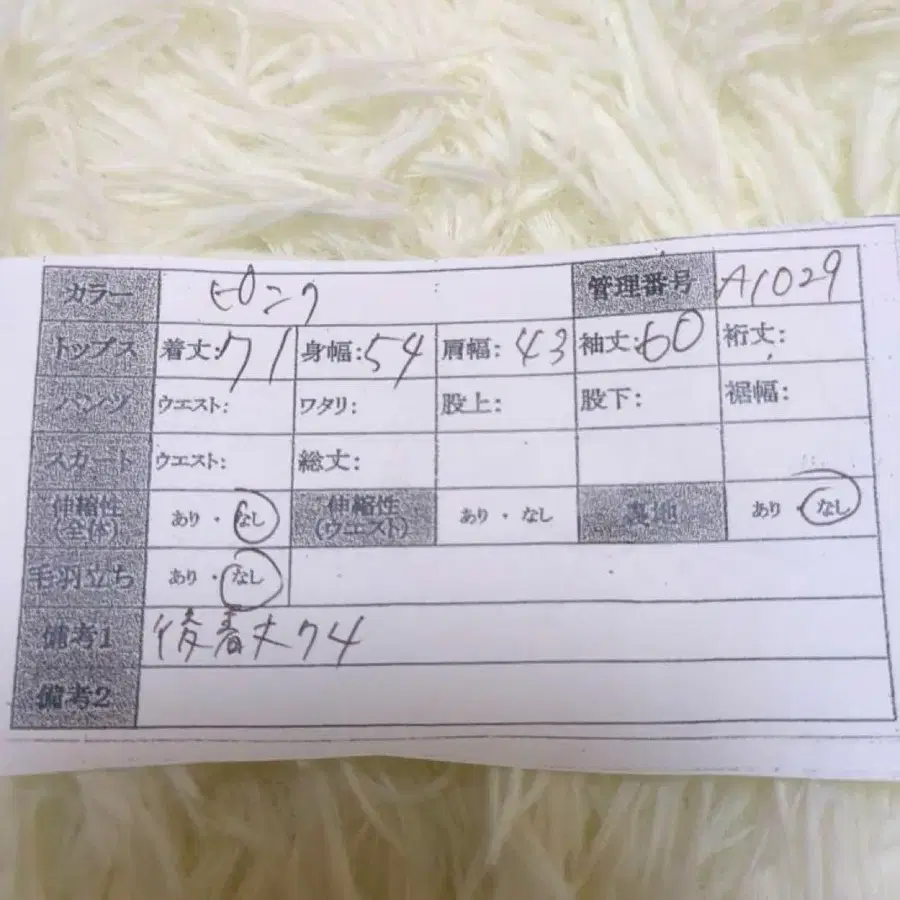 カラー ピンク 管理番号 A1029
トップス 着丈:71 身幅:54 肩幅:43 袖丈:60 裄丈:
パンツ ウエスト: ワタリ: 股上: 股下: 裾幅:
スカート ウエスト: 総丈:
伸縮性(全体) あり・なし 伸縮性(ウエスト) あり・なし 裏地 あり・なし
毛羽立ち あり・なし
備考1 後着丈74
備考2